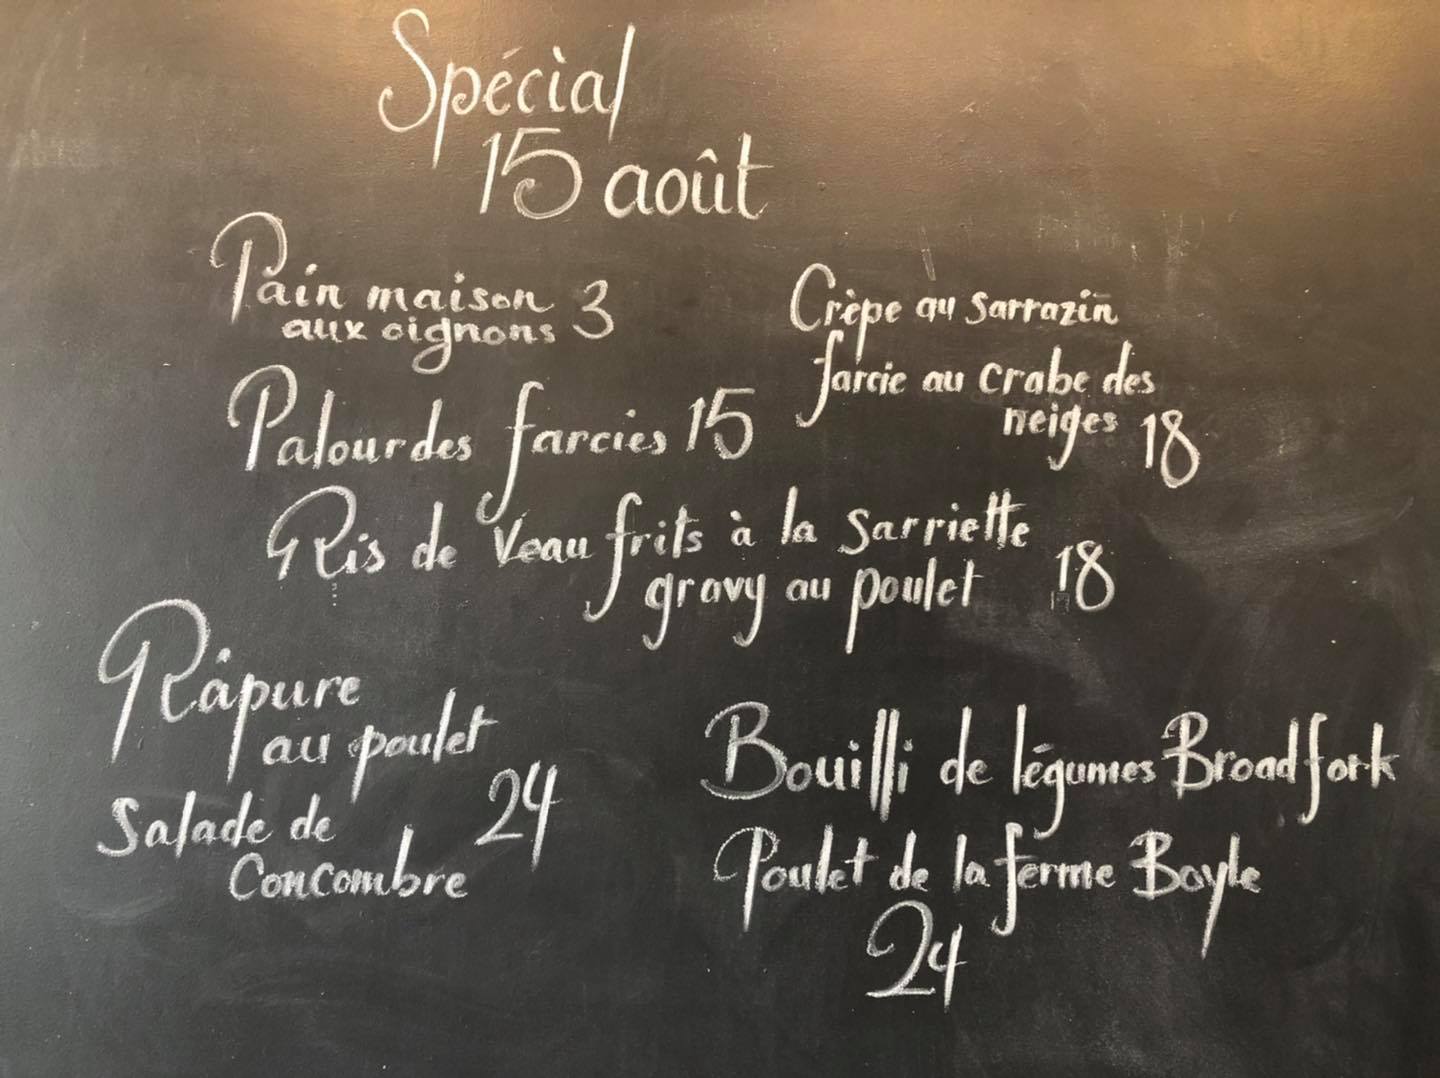 Spécial
15 août
Pain maison
aux oignons 3
Crèpe au sarrazin
farcie au crabe des
neiges 18
Palourdes farcies 15
Ris de Veau frits à la sarriette
gravy au poulet 18
Râpure
au poulet
Salade de
Concombre 24
Bouilli de légumes Broadfork
Poulet de la ferme Boyle
24